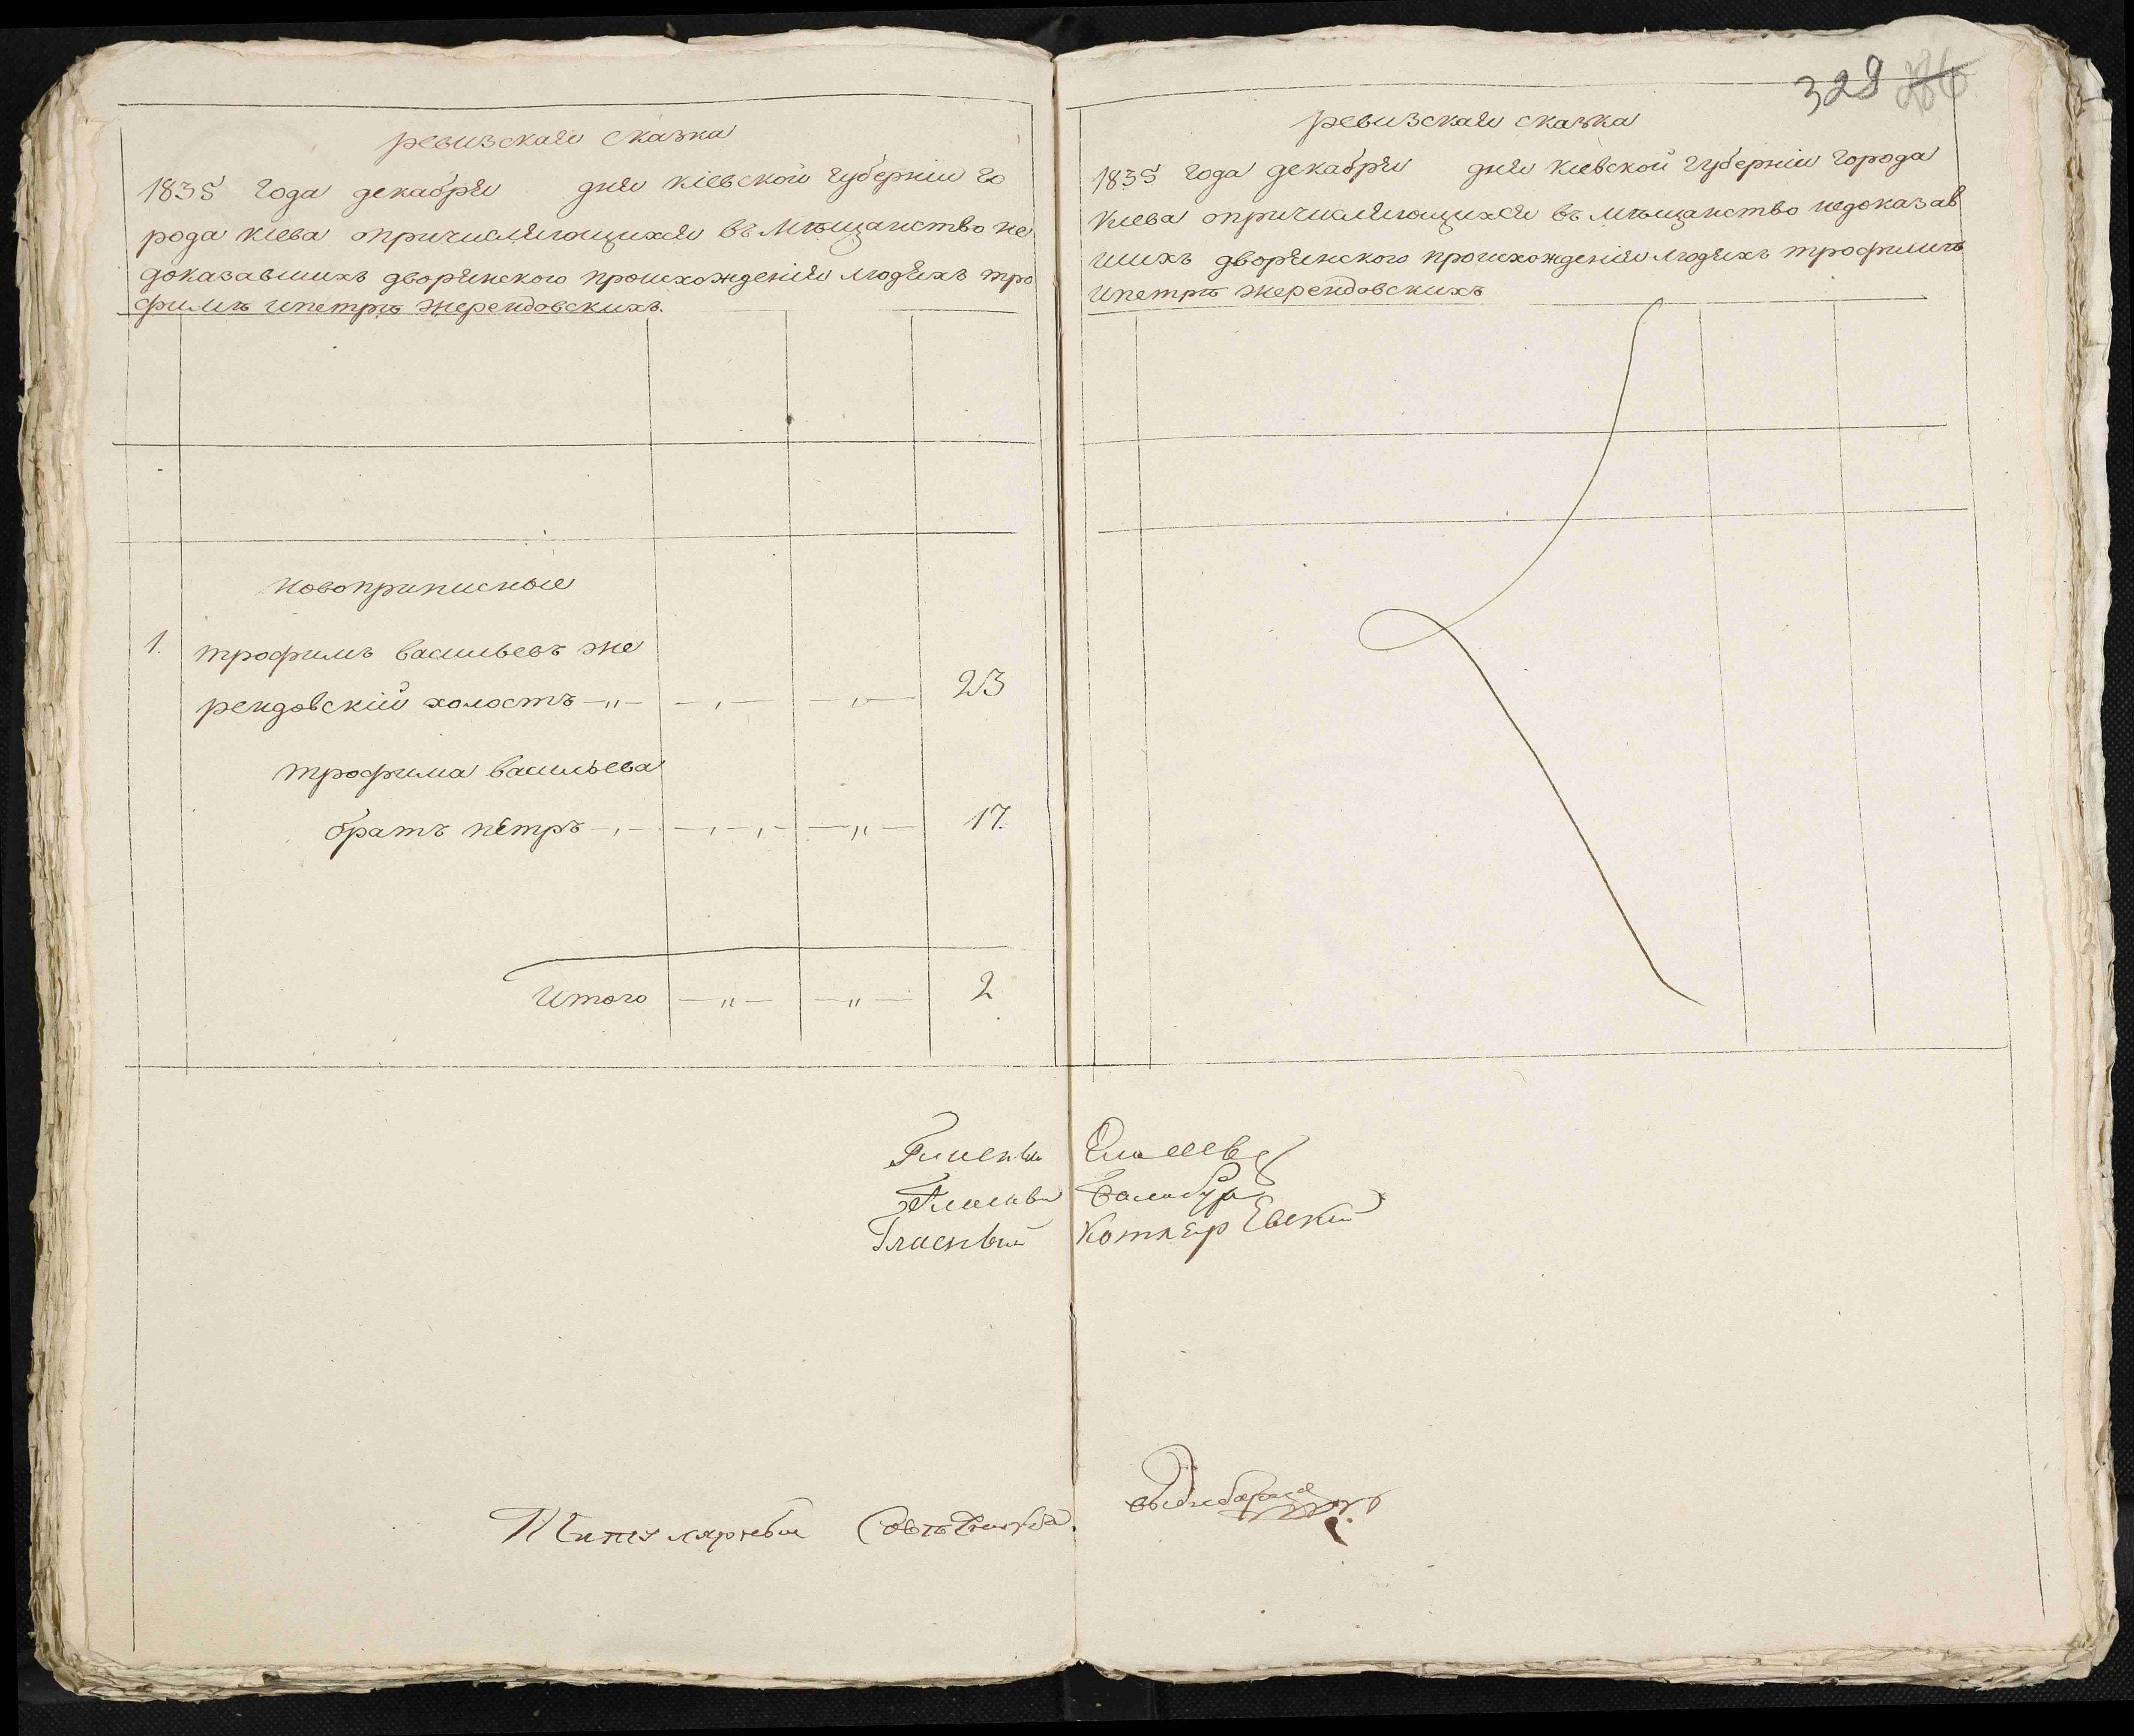 ревизская сказка
1835 года декабря дня кіевской губерніи го
рода кіева опричисляющихся въ мѣщанство не
доказавшихъ дворянского происхожденія людяхъ тро
фимѣ ипетрѣ жерендовскихъ.
новоприписные
1. трофимъ васильевъ же
рендовскій холостъ —„— —„— —„— 23
трофима васильева
братъ пétръ —„— —„—„— —„— 17.
Итого —„— —„— 2
328 286
ревизская сказка
1835 года декабря дня кіевской губерніи города
кіева опричисляющихся въ мѣщанство недоказав
шихъ дворянского происхожденія людяхъ трофимѣ
ипетрѣ жерендовскихъ
Гласный Елисеевъ
Гласный Балабуха
Гласный Котляревскій
Титулярный Совѣтникъ